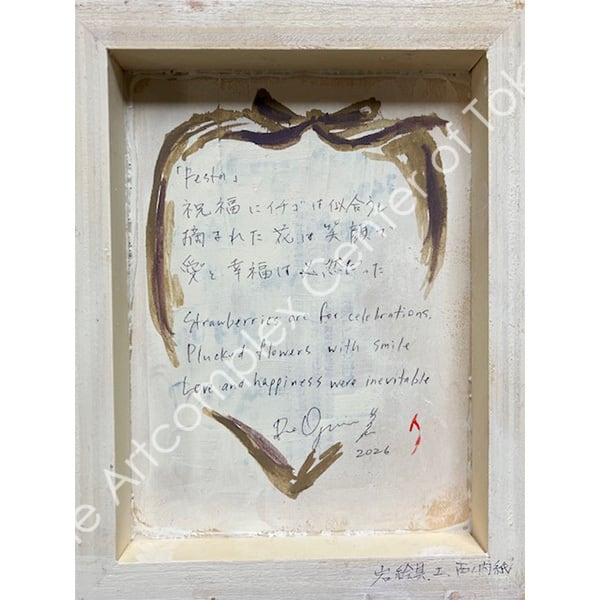 「Festa」
祝福にイチゴは似合うし
摘まれた花は笑顔で
愛と幸福は必然だった
Strawberries are for celebrations.
Plucked flowers with smile
Love and happiness were inevitable
2026
岩絵具、土、西ノ内紙
The Artcomplex Center of Tok